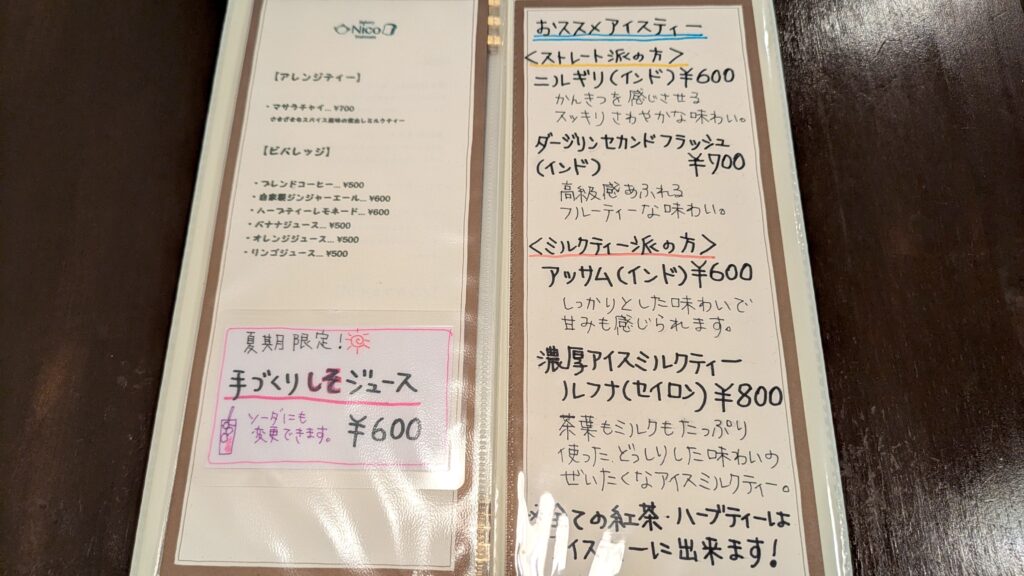 Nico
【アレンジティー】
・マサラチャイ... ¥700
さまざまなスパイス風味の煮出しミルクティー
【ビバレッジ】
・ブレンドコーヒー... ¥500
・自家製ジンジャーエール... ¥600
・ハーブティーレモネード... ¥600
・バナナジュース... ¥500
・オレンジジュース... ¥500
・リンゴジュース... ¥500
夏期限定!
手づくりしそジュース
ソーダにも
変更できます。 ¥600
おススメアイスティー
<ストレート派の方>
ニルギリ(インド)¥600
かんきつを感じさせる
スッキリさわやかな味わい。
ダージリンセカンドフラッシュ
(インド) ¥700
高級感あふれる
フルーティーな味わい。
<ミルクティー派の方>
アッサム(インド)¥600
しっかりとした味わいで
甘みも感じられます。
濃厚アイスミルクティー
ルフナ(セイロン)¥800
茶葉もミルクもたっぷり
使った、どっしりした味わいの
ぜいたくなアイスミルクティー。
※全ての紅茶・ハーブティーは
アイスティーに出来ます!